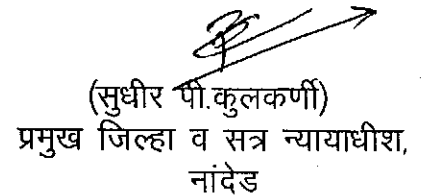 (सुधीर पी.कुलकर्णी)
प्रमुख जिल्हा व सत्र न्यायाधीश,
नांदेड